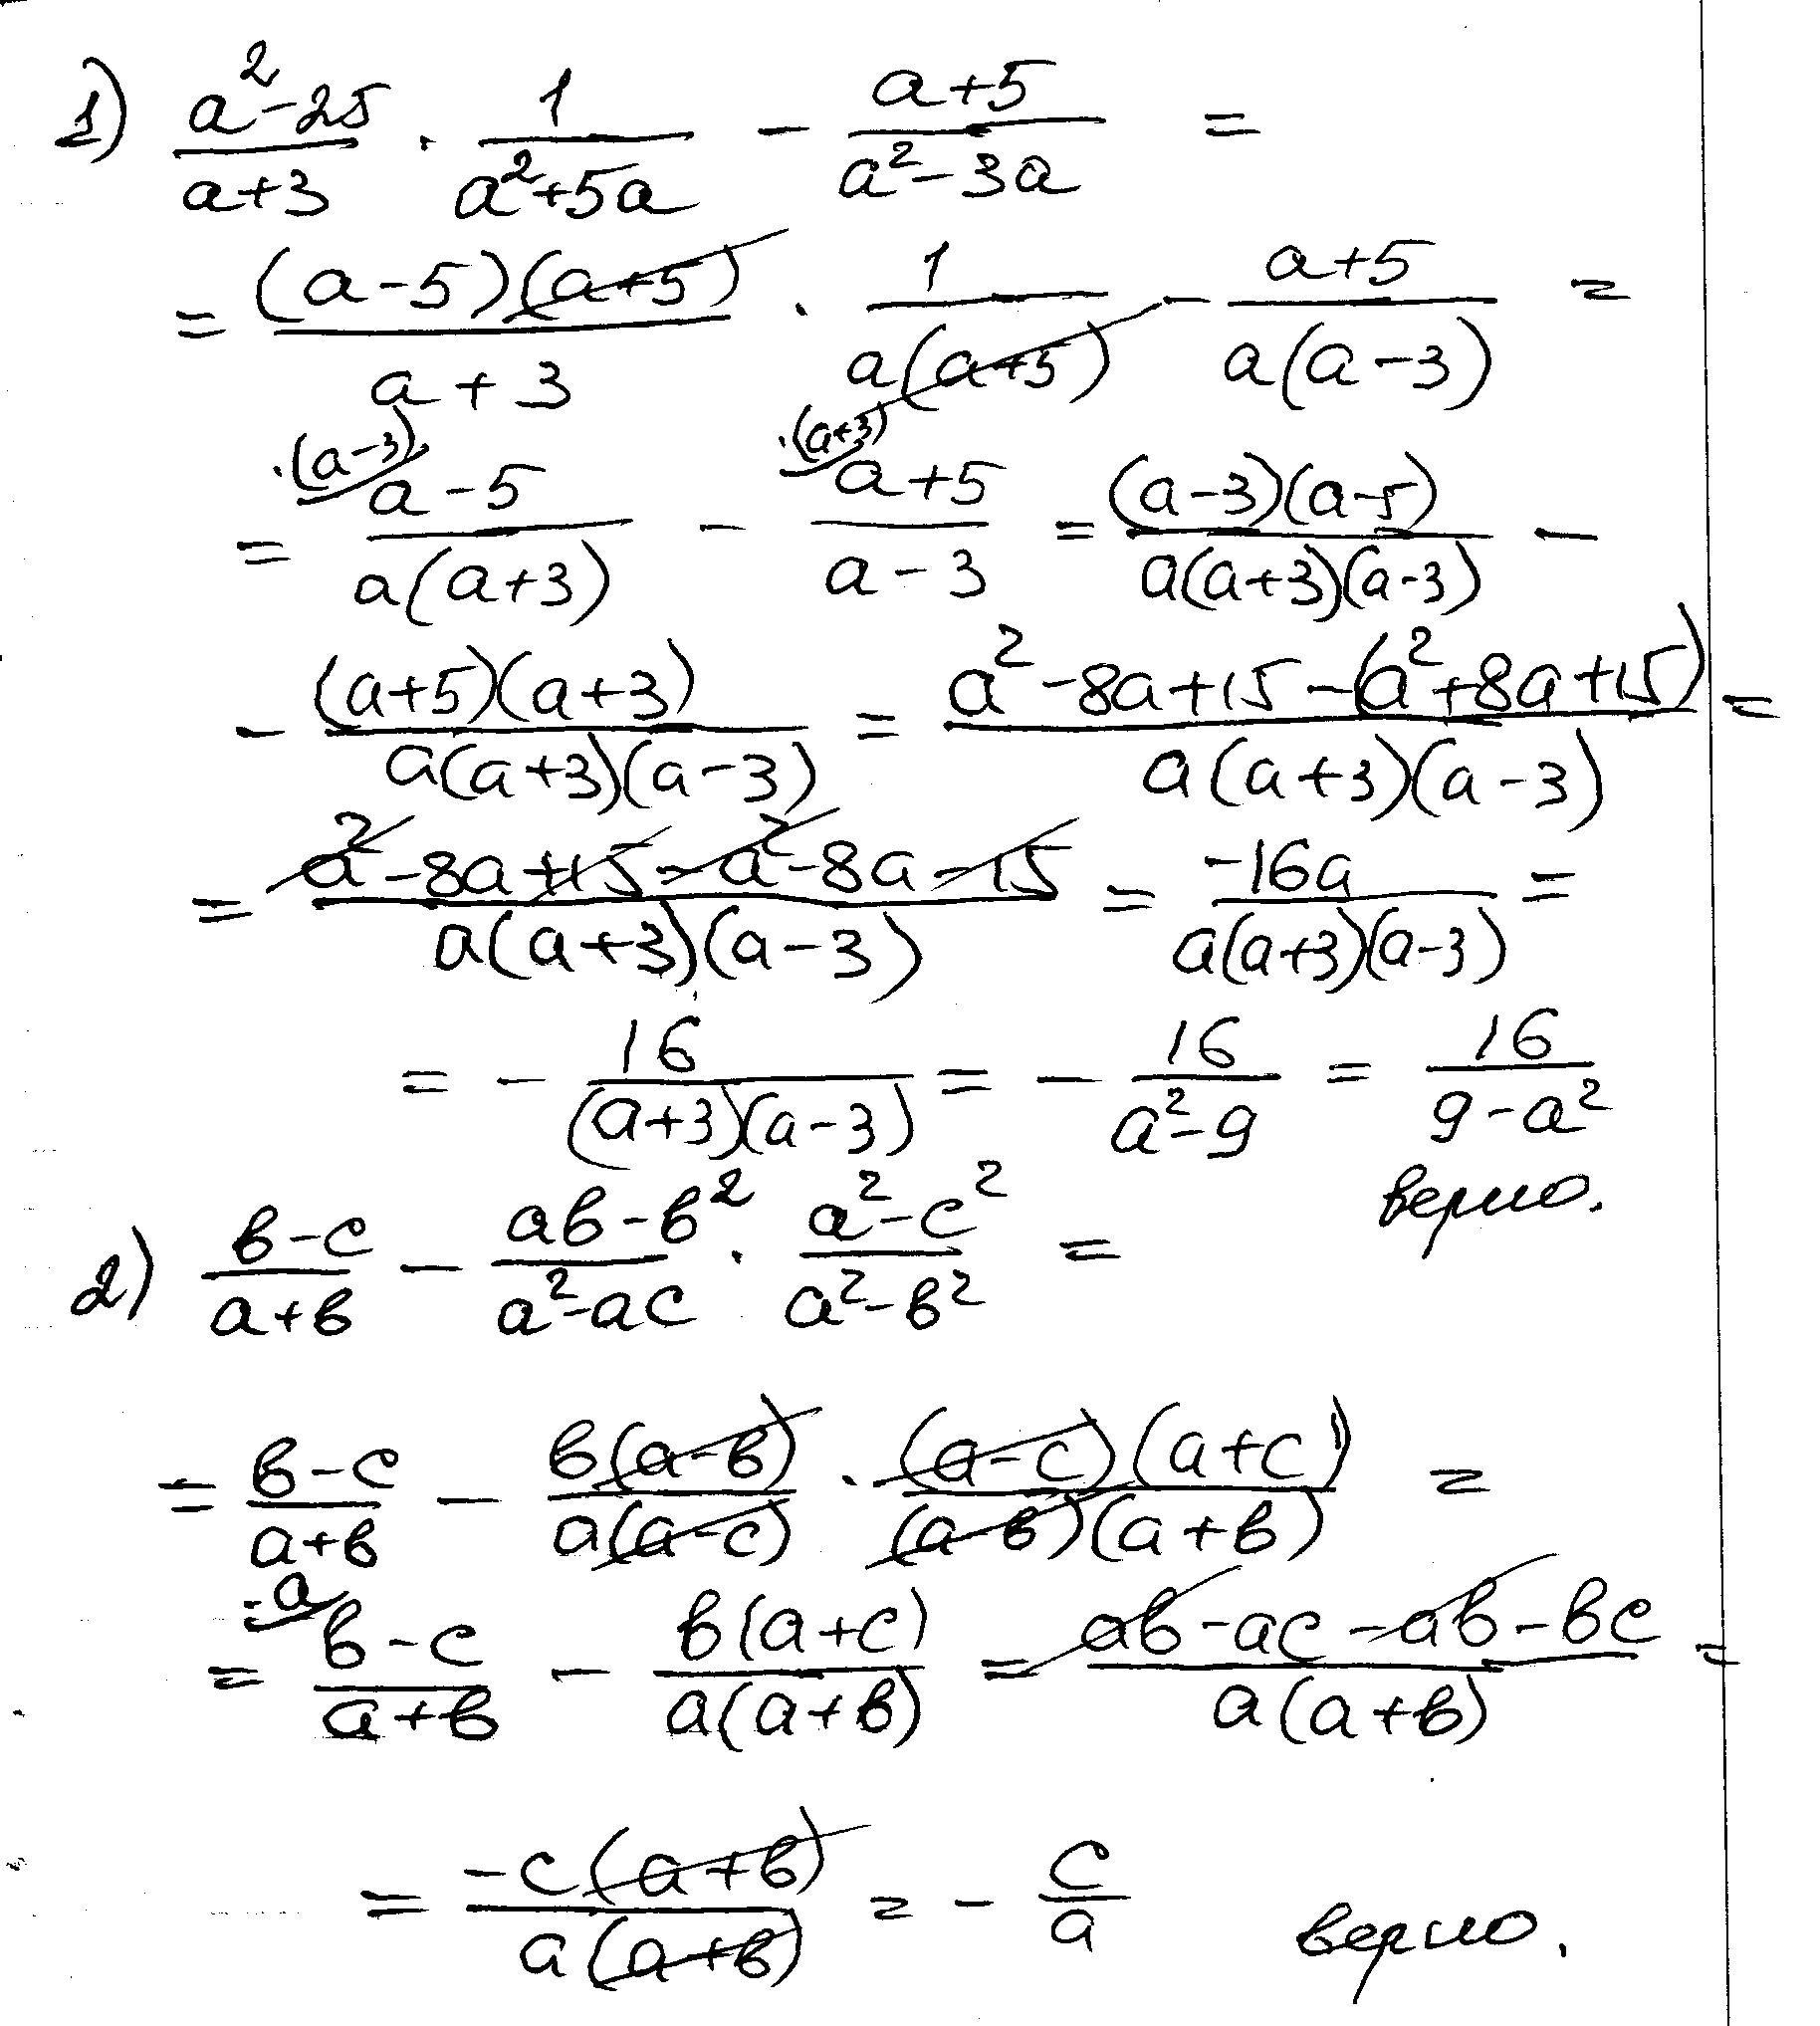 1) (a²-25)/(a+3) · 1/(a²+5a) - (a+5)/(a²-3a) =
= ((a-5)(a+5))/(a+3) · 1/(a(a+5)) - (a+5)/(a(a-3)) =
= ·(a-3) (a-5)/(a(a+3)) - ·(a+3) (a+5)/(a-3) = ((a-3)(a-5))/(a(a+3)(a-3)) -
- ((a+5)(a+3))/(a(a+3)(a-3)) = (a²-8a+15-(a²+8a+15))/(a(a+3)(a-3)) =
= (a²-8a+15-a²-8a-15)/(a(a+3)(a-3)) = (-16a)/(a(a+3)(a-3)) =
= - 16/((a+3)(a-3)) = - 16/(a²-9) = 16/(9-a²)
верно.
2) (в-c)/(a+в) - (aв-в²)/(a²-ac) · (a²-c²)/(a²-в²) =
= (в-c)/(a+в) - (в(a-в))/(a(a-c)) · ((a-c)(a+c))/((a-в)(a+в)) =
= ·a (в-c)/(a+в) - (в(a+c))/(a(a+в)) = (aв-ac-aв-вc)/(a(a+в)) =
= (-c(a+в))/(a(a+в)) = - c/a верно.